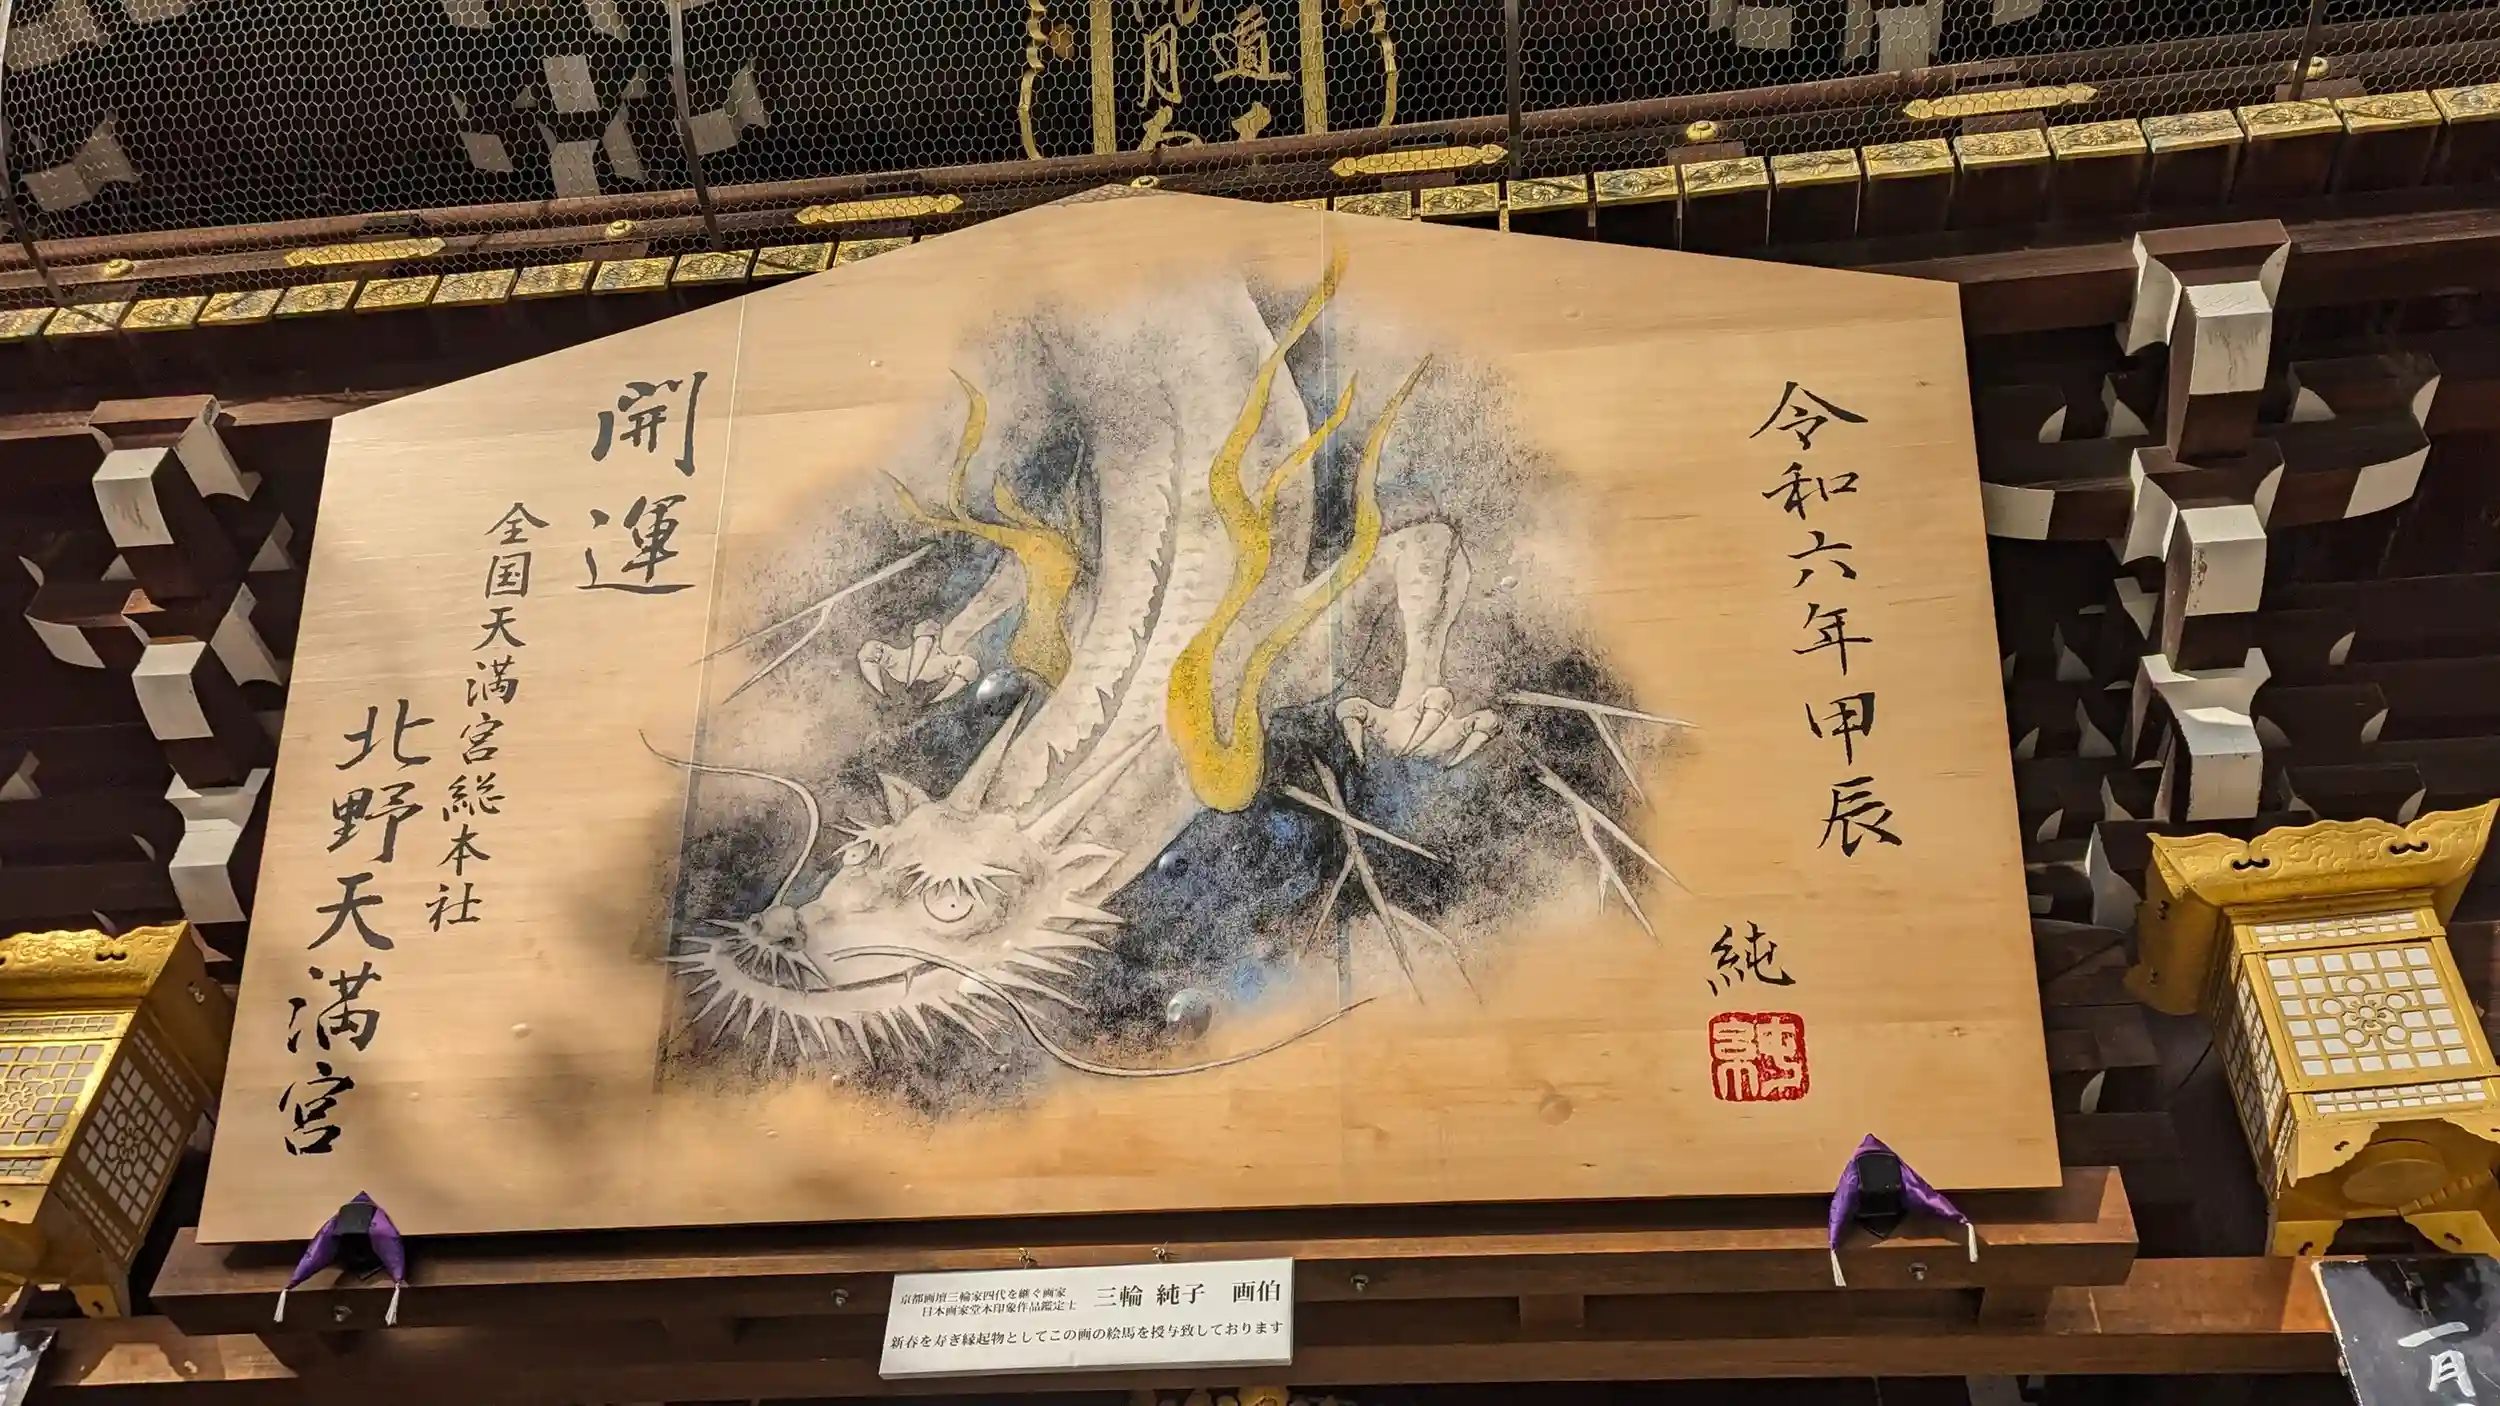 令和六年甲辰
純
純
開運
全国天満宮総本社
北野天満宮
京都画壇三輪家四代を継ぐ画家
日本画家堂本印象作品鑑定士
三輪 純子 画伯
新春を寿ぎ縁起物としてこの画の絵馬を授与致しております
一月